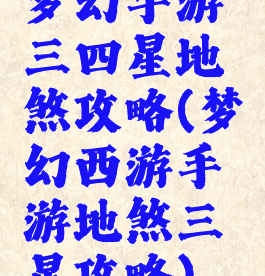 梦幻手游
三四星地
煞攻略(梦
幻西游手
游地煞三
星攻略)